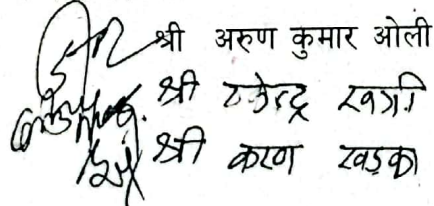 श्री अरुण कुमार ओली
श्री राजेन्द्र खत्री
श्री करण खड्का